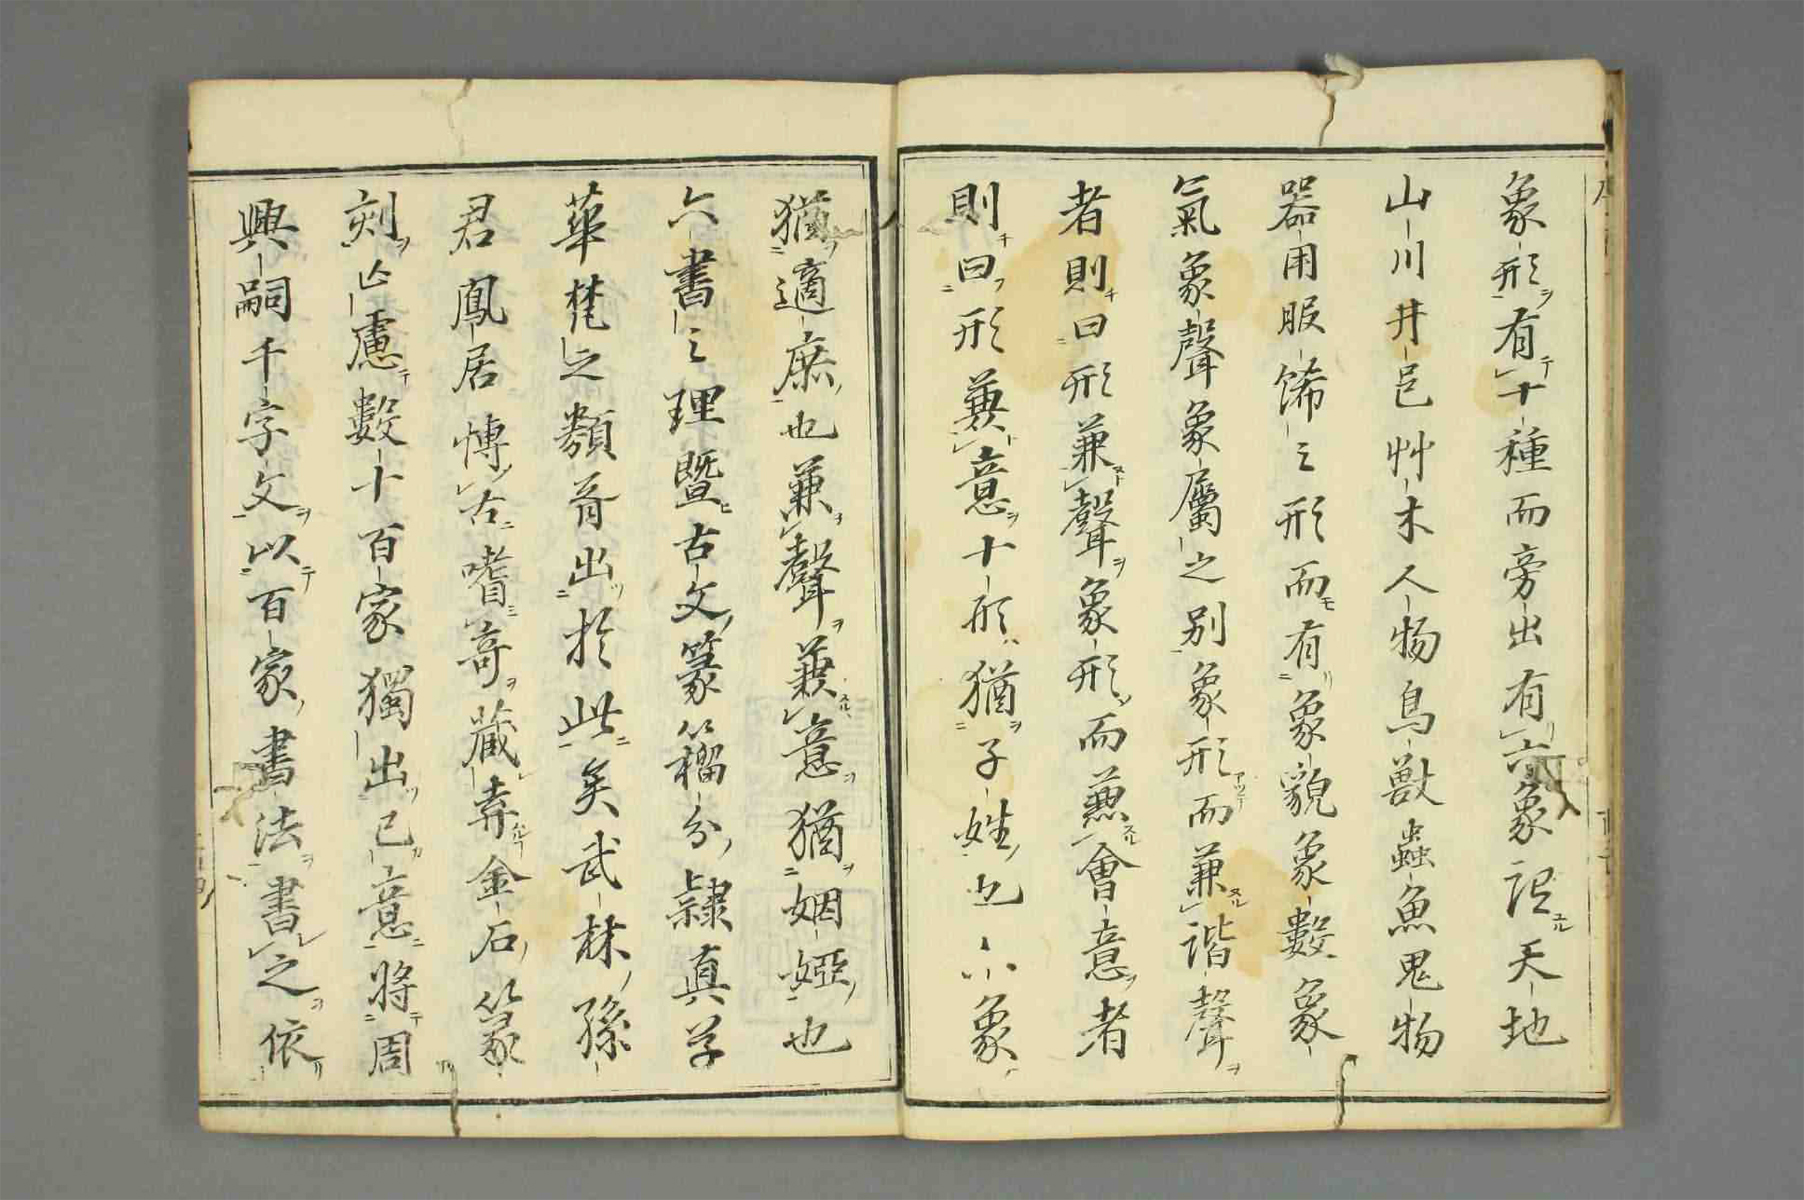 象形有十種而旁出有六象天地
山川井邑艸木人物鳥獸蟲魚鬼物
器用服飾之形而有象貌象數象
氣象聲象屬之別象形而兼諧聲
者則曰形兼聲象形而兼會意者
則曰形兼意十形猶子姓也六象
猶適庶也兼聲兼意猶姻婭也
六書之理暨古文篆籀分隸真草
華梵之類胥出於此矣武林孫
君鳳居博古嗜奇藏弆金石篆
刻亡慮數十百家獨出己意將周
興嗣千字文以百家書法書之依